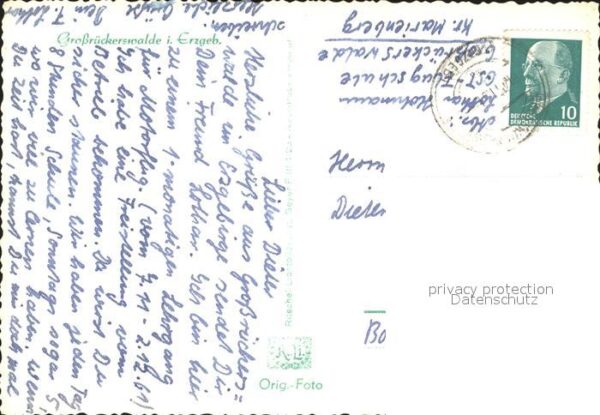 Großrückerswalde i. Erzgeb.
Lieber Dieter
Herzliche Grüße aus Großrückers=
walde im Erzgebirge sendet Dir
Dein Freund Lothar. Ich bin hier
zu einem 1-monatigen Lehrgang
für Motorflug (vom 7.11 - 2.12.61)
Ich habe eine Freistellung vom
Betrieb bekommen. Da wirst Du
sicher staunen. Wir haben jeden Tag
8 Stunden Schule, Sonntags sogar 5
wo wir viel zu lernen haben. Wenn
Du Zeit hast kannst Du mir doch mal
schreiben.
Herzliche Grüße
Dein Lothar
Abs:
Lothar Hohmann
GST-Flugschule
Großrückerswalde
Kr. Marienberg
10
DEUTSCHE
DEMOKRATISCHE REPUBLIK
Herrn
Dieter
privacy protection
Datenschutz
130
Orig.-Foto